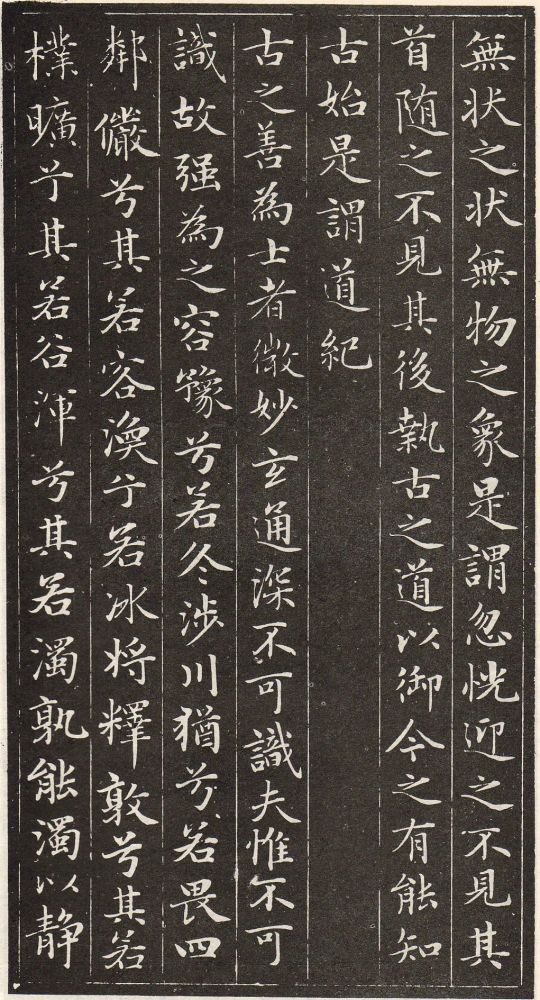 無状之状無物之象是謂忽恍迎之不見其
首随之不見其後執古之道以御今之有能知
古始是謂道紀
古之善為士者微妙玄通深不可識夫惟不可
識故强為之容豫兮若冬涉川猶兮若畏四
鄰儼兮其若容渙兮若冰將釋敦兮其若
樸曠兮其若谷渾兮其若濁孰能濁以静